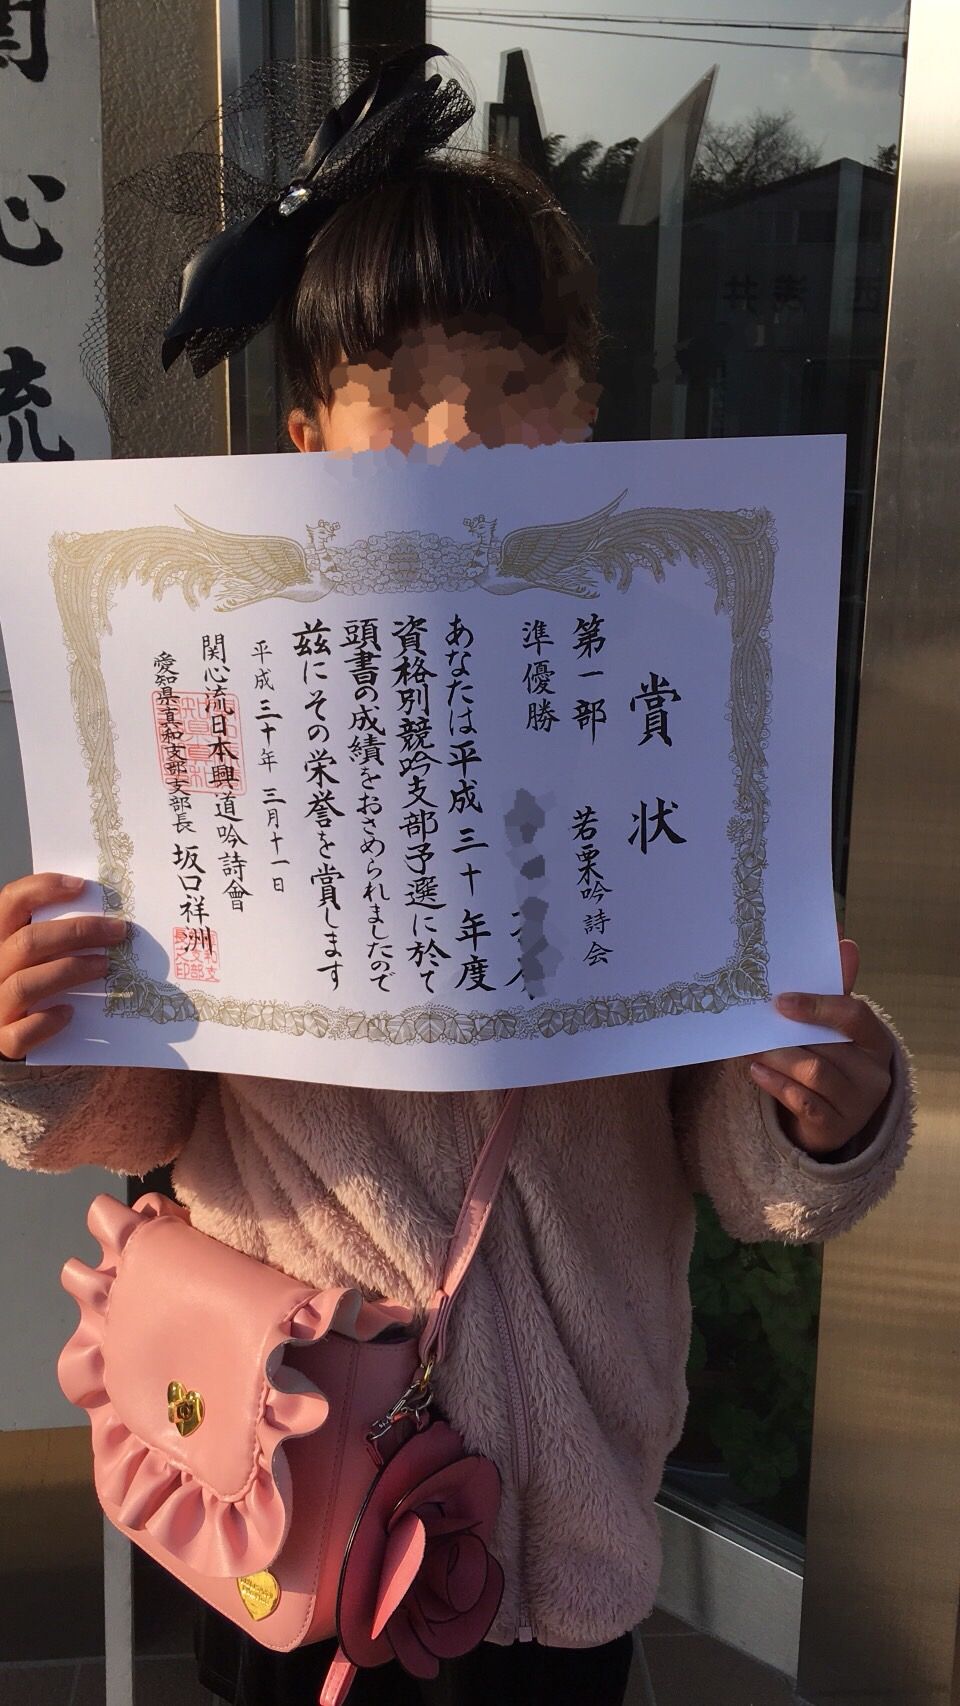 関心流
賞状
第一部 若栗吟詩会
準優勝
あなたは平成三十年度
資格別競吟支部予選に於て
頭書の成績をおさめられましたので
茲にその栄誉を賞します
平成三十年三月十一日
関心流日本興道吟詩會
愛知県真和支部支部長 坂口祥洲